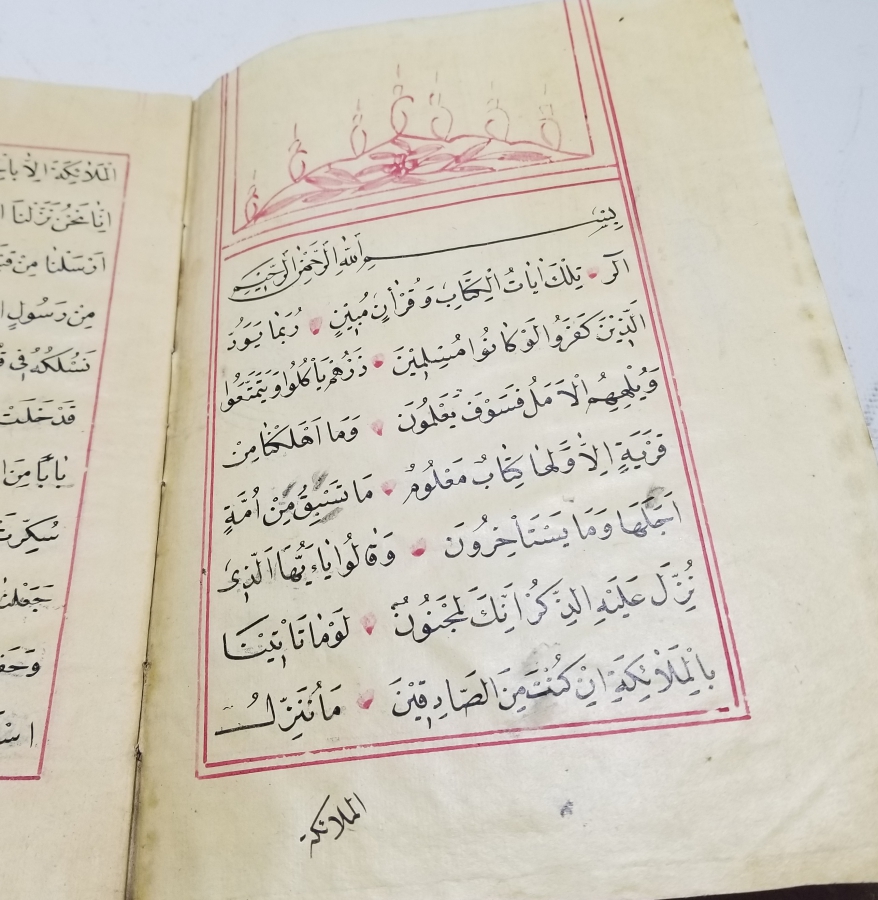 بِسْــــــــمِ اللهِ الرَّحْمٰنِ الرَّحِيْمِ
الٓرٰ تِلْكَ اٰيَاتُ الْكِتَابِ وَقُرْاٰنٍ مُبِيْنٍ رُبَمَا يَوَدُّ
الَّذِيْنَ كَفَرُوا لَوْ كَانُوا مُسْلِمِيْنَ ذَرْهُمْ يَأْكُلُوا وَيَتَمَتَّعُوا
وَيُلْهِهِمُ الْاَمَلُ فَسَوْفَ يَعْلَمُوْنَ وَمَا اَهْلَكْنَا مِنْ
قَرْيَةٍ اِلَّا وَلَهَا كِتَابٌ مَعْلُومٌ مَا تَسْبِقُ مِنْ اُمَّةٍ
اَجَلَهَا وَمَا يَسْتَأْخِرُوْنَ وَقَالُوا يَا اَيُّهَا الَّذِى
نُزِّلَ عَلَيْهِ الذِّكْرُ اِنَّكَ لَمَجْنُوْنٌ لَوْ مَا تَأْتِيْنَا
بِالْمَلَائِكَةِ اِنْ كُنْتَ مِنَ الصَّادِقِيْنَ مَا نُنَزِّلُ
الملائكة
الْمَلَائِكَةَ اِلَّا
اِنَّا نَحْنُ نَزَّلْنَا
اَرْسَلْنَا مِنْ
مِنْ رَسُولٍ
نَسْلُكُهُ فِى
قَدْ خَلَتْ
بَابًا مِنَ
سُكِّرَتْ